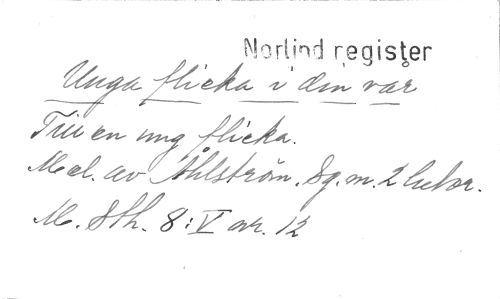 Norlind register
Unga flicka i din vår
Till en ung flicka.
Mel. av Åhlström. Sg. m. 2
M. Sth. 8:V nr. 12